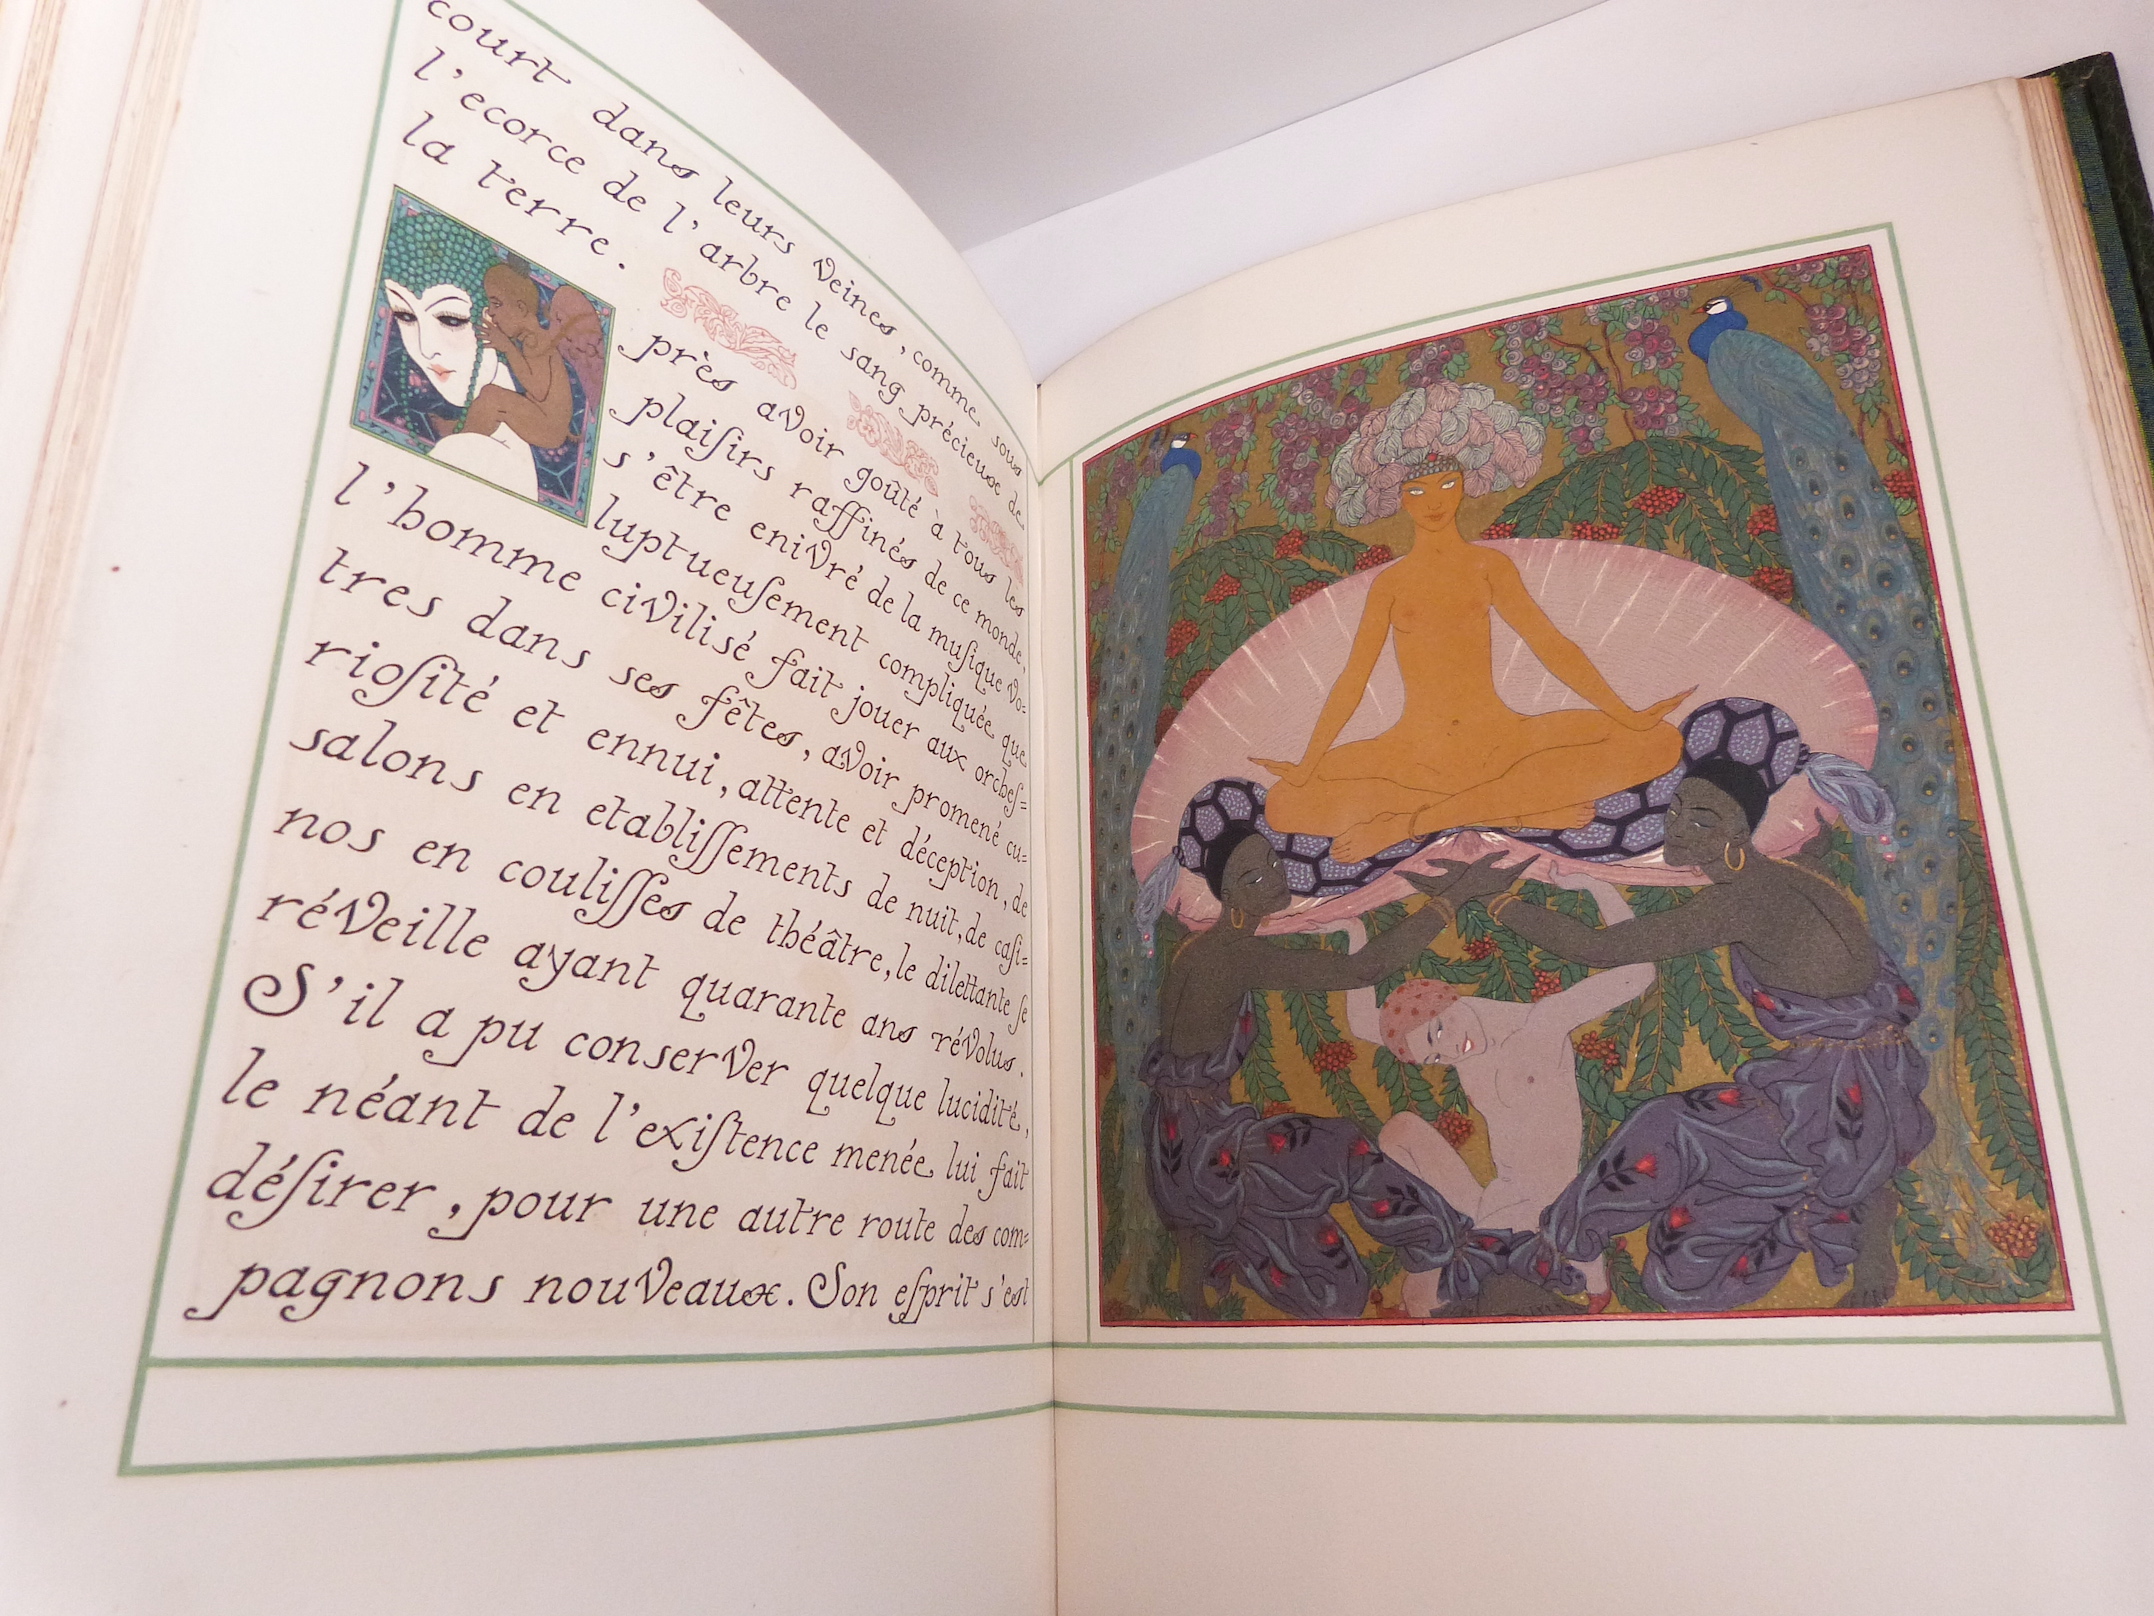 court dans leurs veines, comme sous
l'ecorce de l'arbre le sang précieux de
la terre.
près avoir goûté à tous les
plaiſirs raffinés de ce monde,
s'être enivré de la muſique vo=
luptueuſement compliquée que
l'homme civilisé fait jouer aux orcheſ=
tres dans ses fêtes, avoir promené cu=
rioſité et ennui, attente et déception, de
salons en etabliſſements de nuit, de caſi=
nos en couliſſes de théâtre, le dilettante ſe
réveille ayant quarante ans révolus.
S'il a pu conserver quelque lucidité,
le néant de l'exiſtence menée lui fait
déſirer, pour une autre route des com=
pagnons nouveaux. Son eſprit s'est